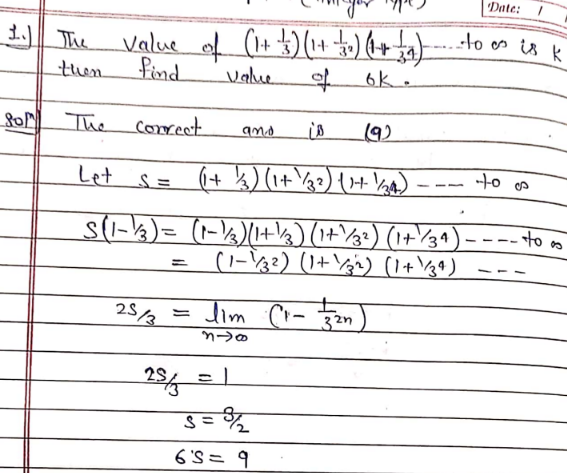 (Integer Type)
Date: / /
1.) The value of (1+ 1/3)(1+ 1/3²)(1+ 1/3⁴)-----to ∞ is k
then find value of 6k.
Solⁿ The correct ans is (9)
Let s = (1+ 1/3)(1+1/3²)(1+1/3⁴) --- to ∞
S(1-1/3) = (1-1/3)(1+1/3)(1+1/3²)(1+1/3⁴)----to ∞
= (1-1/3²)(1+1/3²)(1+1/3⁴) ---
2S/3 = lim n→∞ (1- 1/3²ⁿ)
2S/3 = 1
S = 3/2
6S = 9